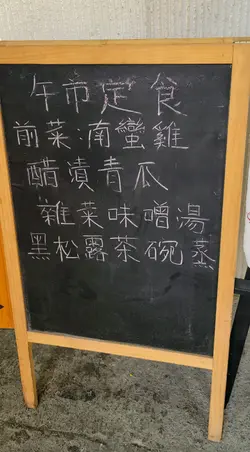 午市定食
前菜:南蠻雞
醋漬青瓜
雜菜味噌湯
黑松露茶碗蒸